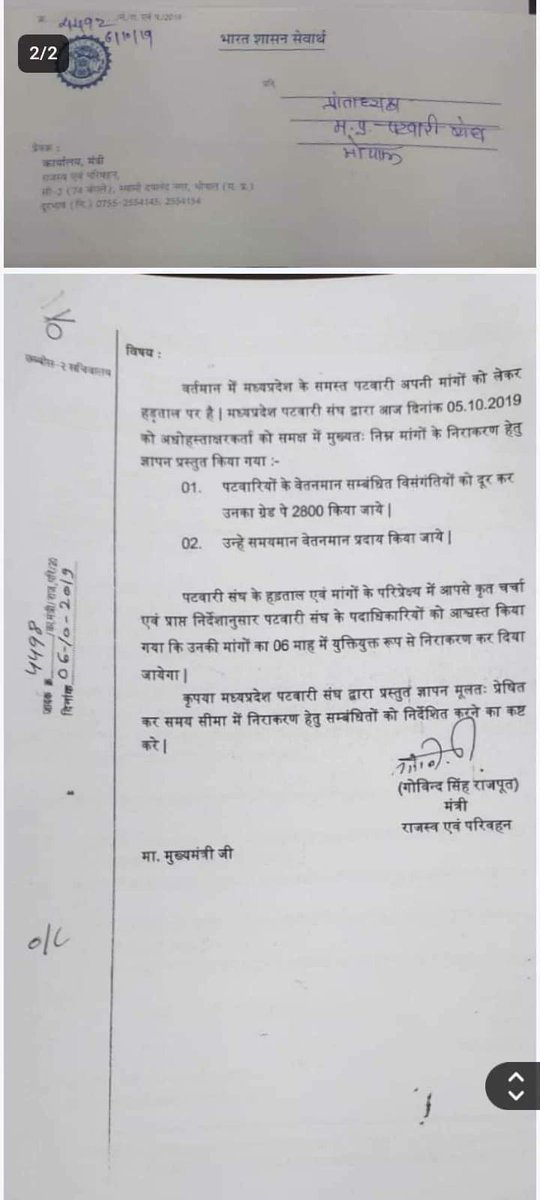 2/2
क्र. 4492 /मं.रा. एवं प./2019
6/10/19
भारत शासन सेवार्थ
प्रति
प्रांताध्यक्ष
म.प्र. पटवारी संघ
भोपाल
प्रेषक :
कार्यालय, मंत्री
राजस्व एवं परिवहन,
सी-2 (74 बंगले), स्वामी दयानंद नगर, भोपाल (म. प्र.)
दूरभाष (नि.) 0755-2554145, 2554154
विषय :
वर्तमान में मध्यप्रदेश के समस्त पटवारी अपनी मांगों को लेकर
हड़ताल पर है | मध्यप्रदेश पटवारी संघ द्वारा आज दिनांक 05.10.2019
को अधोहस्ताक्षरकर्ता को समक्ष में मुख्यतः निम्न मांगों के निराकरण हेतु
ज्ञापन प्रस्तुत किया गया :-
01. पटवारियों के वेतनमान सम्बंधित विसंगतियों को दूर कर
उनका ग्रेड पे 2800 किया जाये |
02. उन्हे समयमान वेतनमान प्रदाय किया जाये |
पटवारी संघ के हड़ताल एवं मांगों के परिप्रेक्ष्य में आपसे कृत चर्चा
एवं प्राप्त निर्देशानुसार पटवारी संघ के पदाधिकारियों को आश्वस्त किया
गया कि उनकी मांगों का 06 माह में युक्तियुक्त रूप से निराकरण कर दिया
जायेगा |
कृपया मध्यप्रदेश पटवारी संघ द्वारा प्रस्तुत ज्ञापन मूलतः प्रेषित
कर समय सीमा में निराकरण हेतु सम्बंधितों को निर्देशित करने का कष्ट
करे |
(गोविन्द सिंह राजपूत)
मंत्री
राजस्व एवं परिवहन
मा. मुख्यमंत्री जी
जावक क्र. 4498 /का.मंत्री/राज.परि/20
दिनांक 06-10-2019
o/c